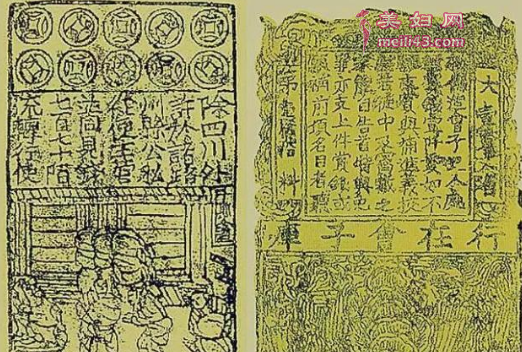 美妇网
meili43.com
除四川外
許於諸路
州縣公私
從便主管
並同見錢
七百七十陌
流轉行使
大壹貫文省
敕偽造會子犯人處
斬賞錢壹阡貫如不
願支賞與補進義校
尉若徒中及窩藏之
家能自告首特與免
罪亦支上件賞錢或
願補前項名目者聽
行在會子庫